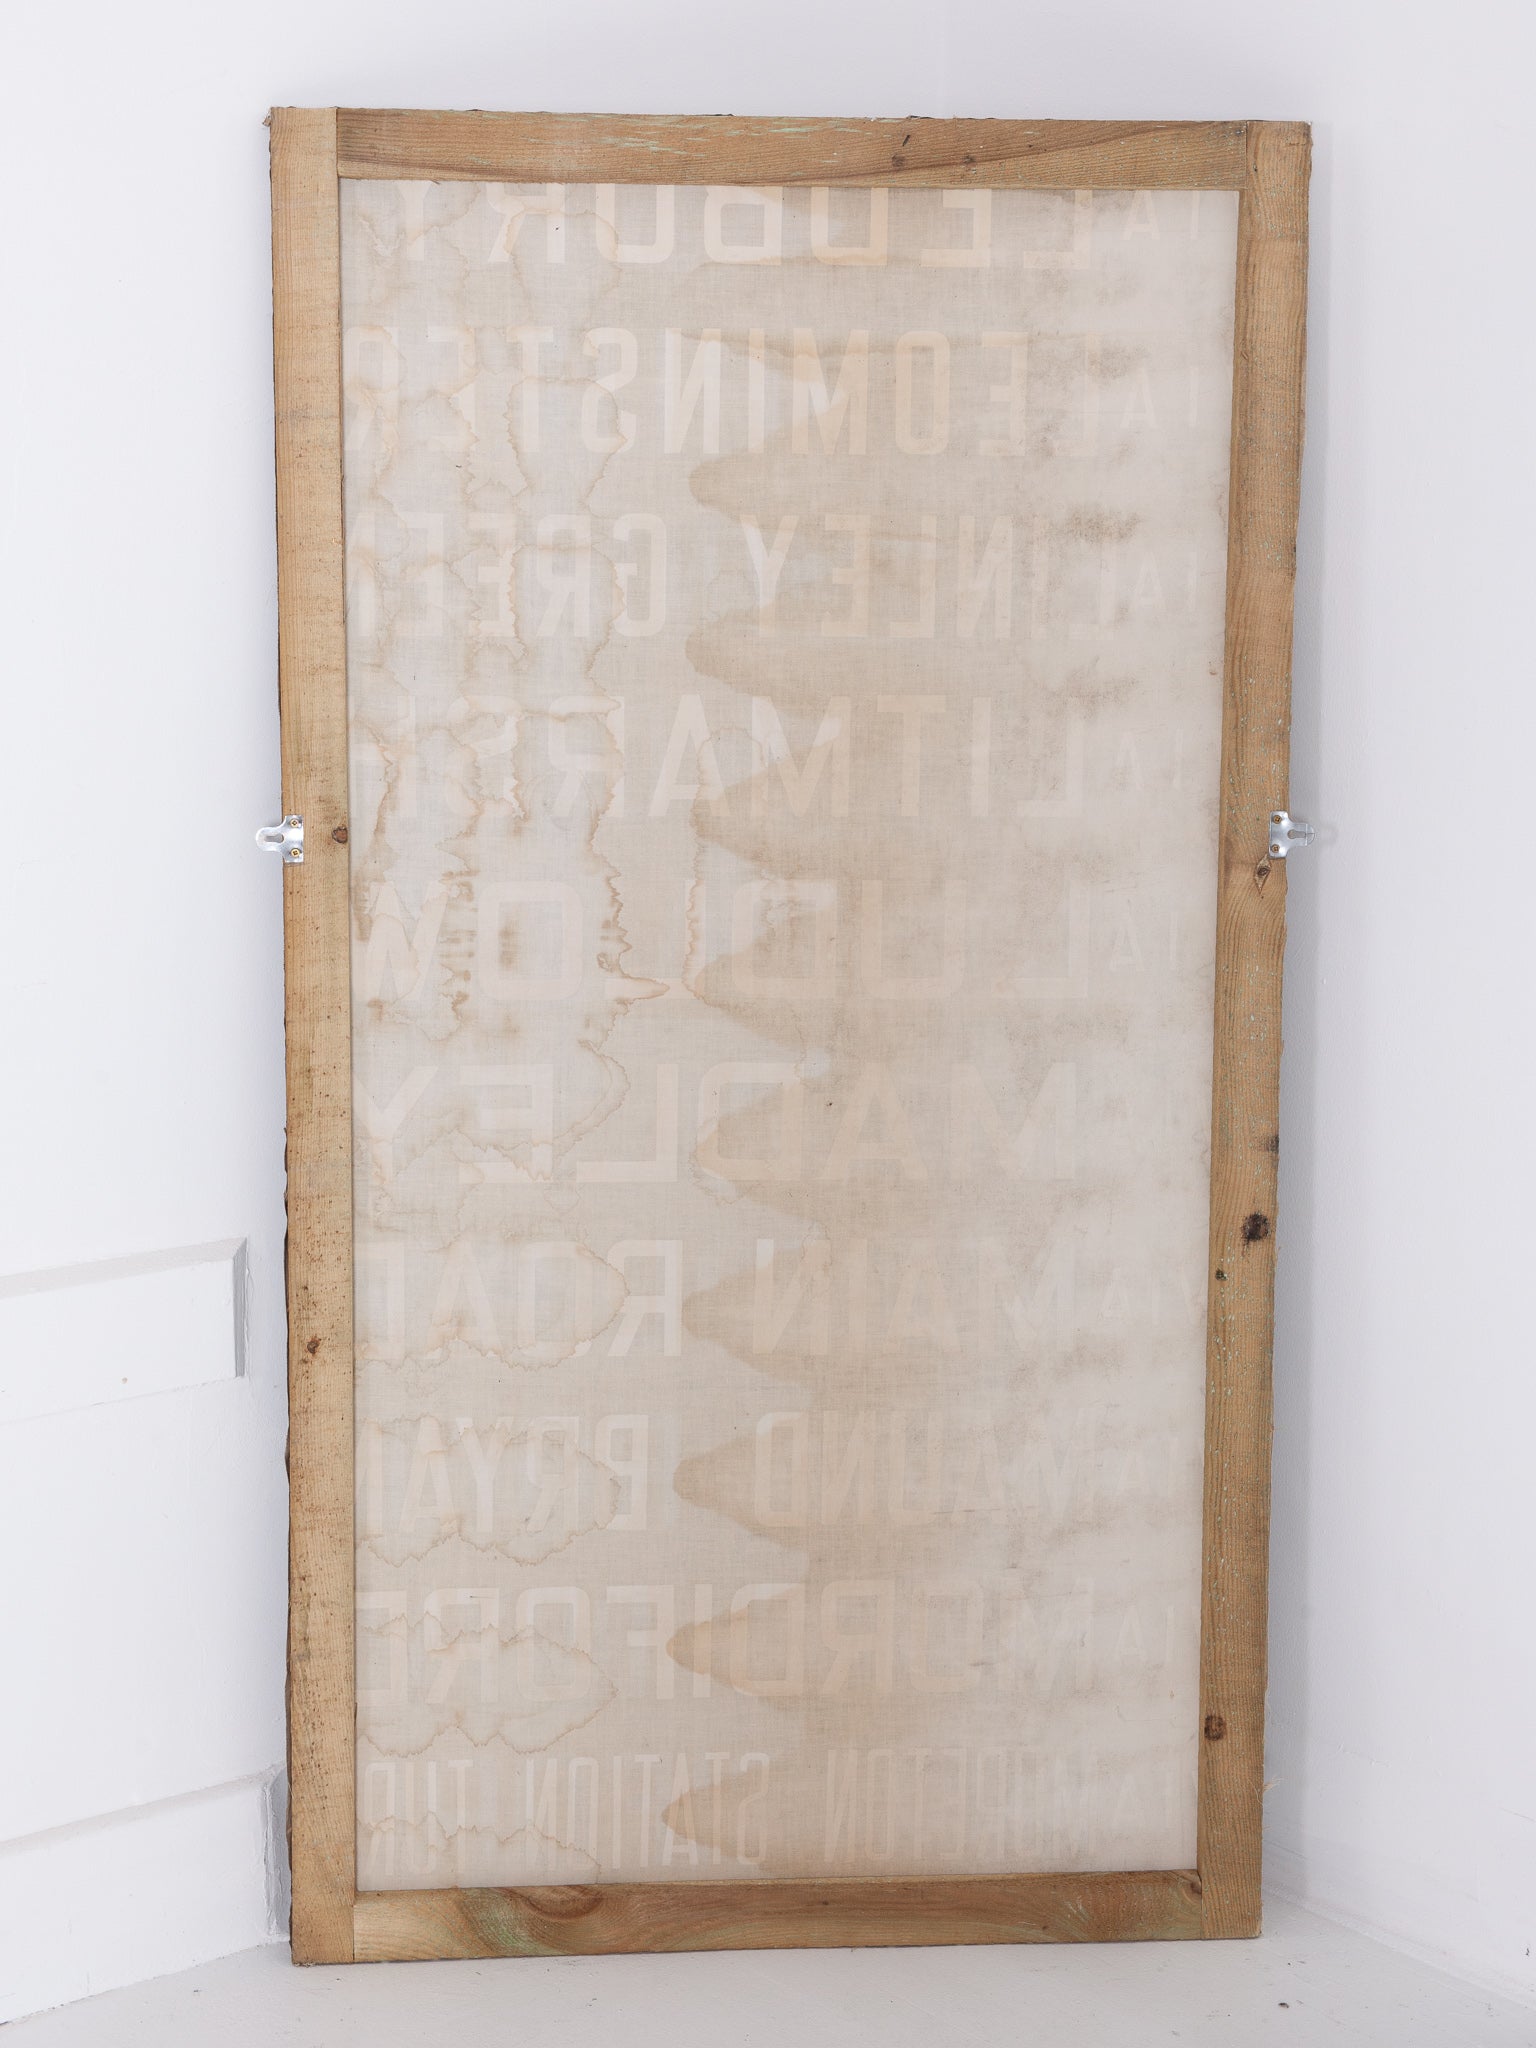 LEDBURY
LEOMINSTER
LINLEY GREEN
LITMARSH
LUDLOW
MADLEY
MAIN ROAD
MAUND BRYAN
MORDIFORD
MORETON STATION TUR